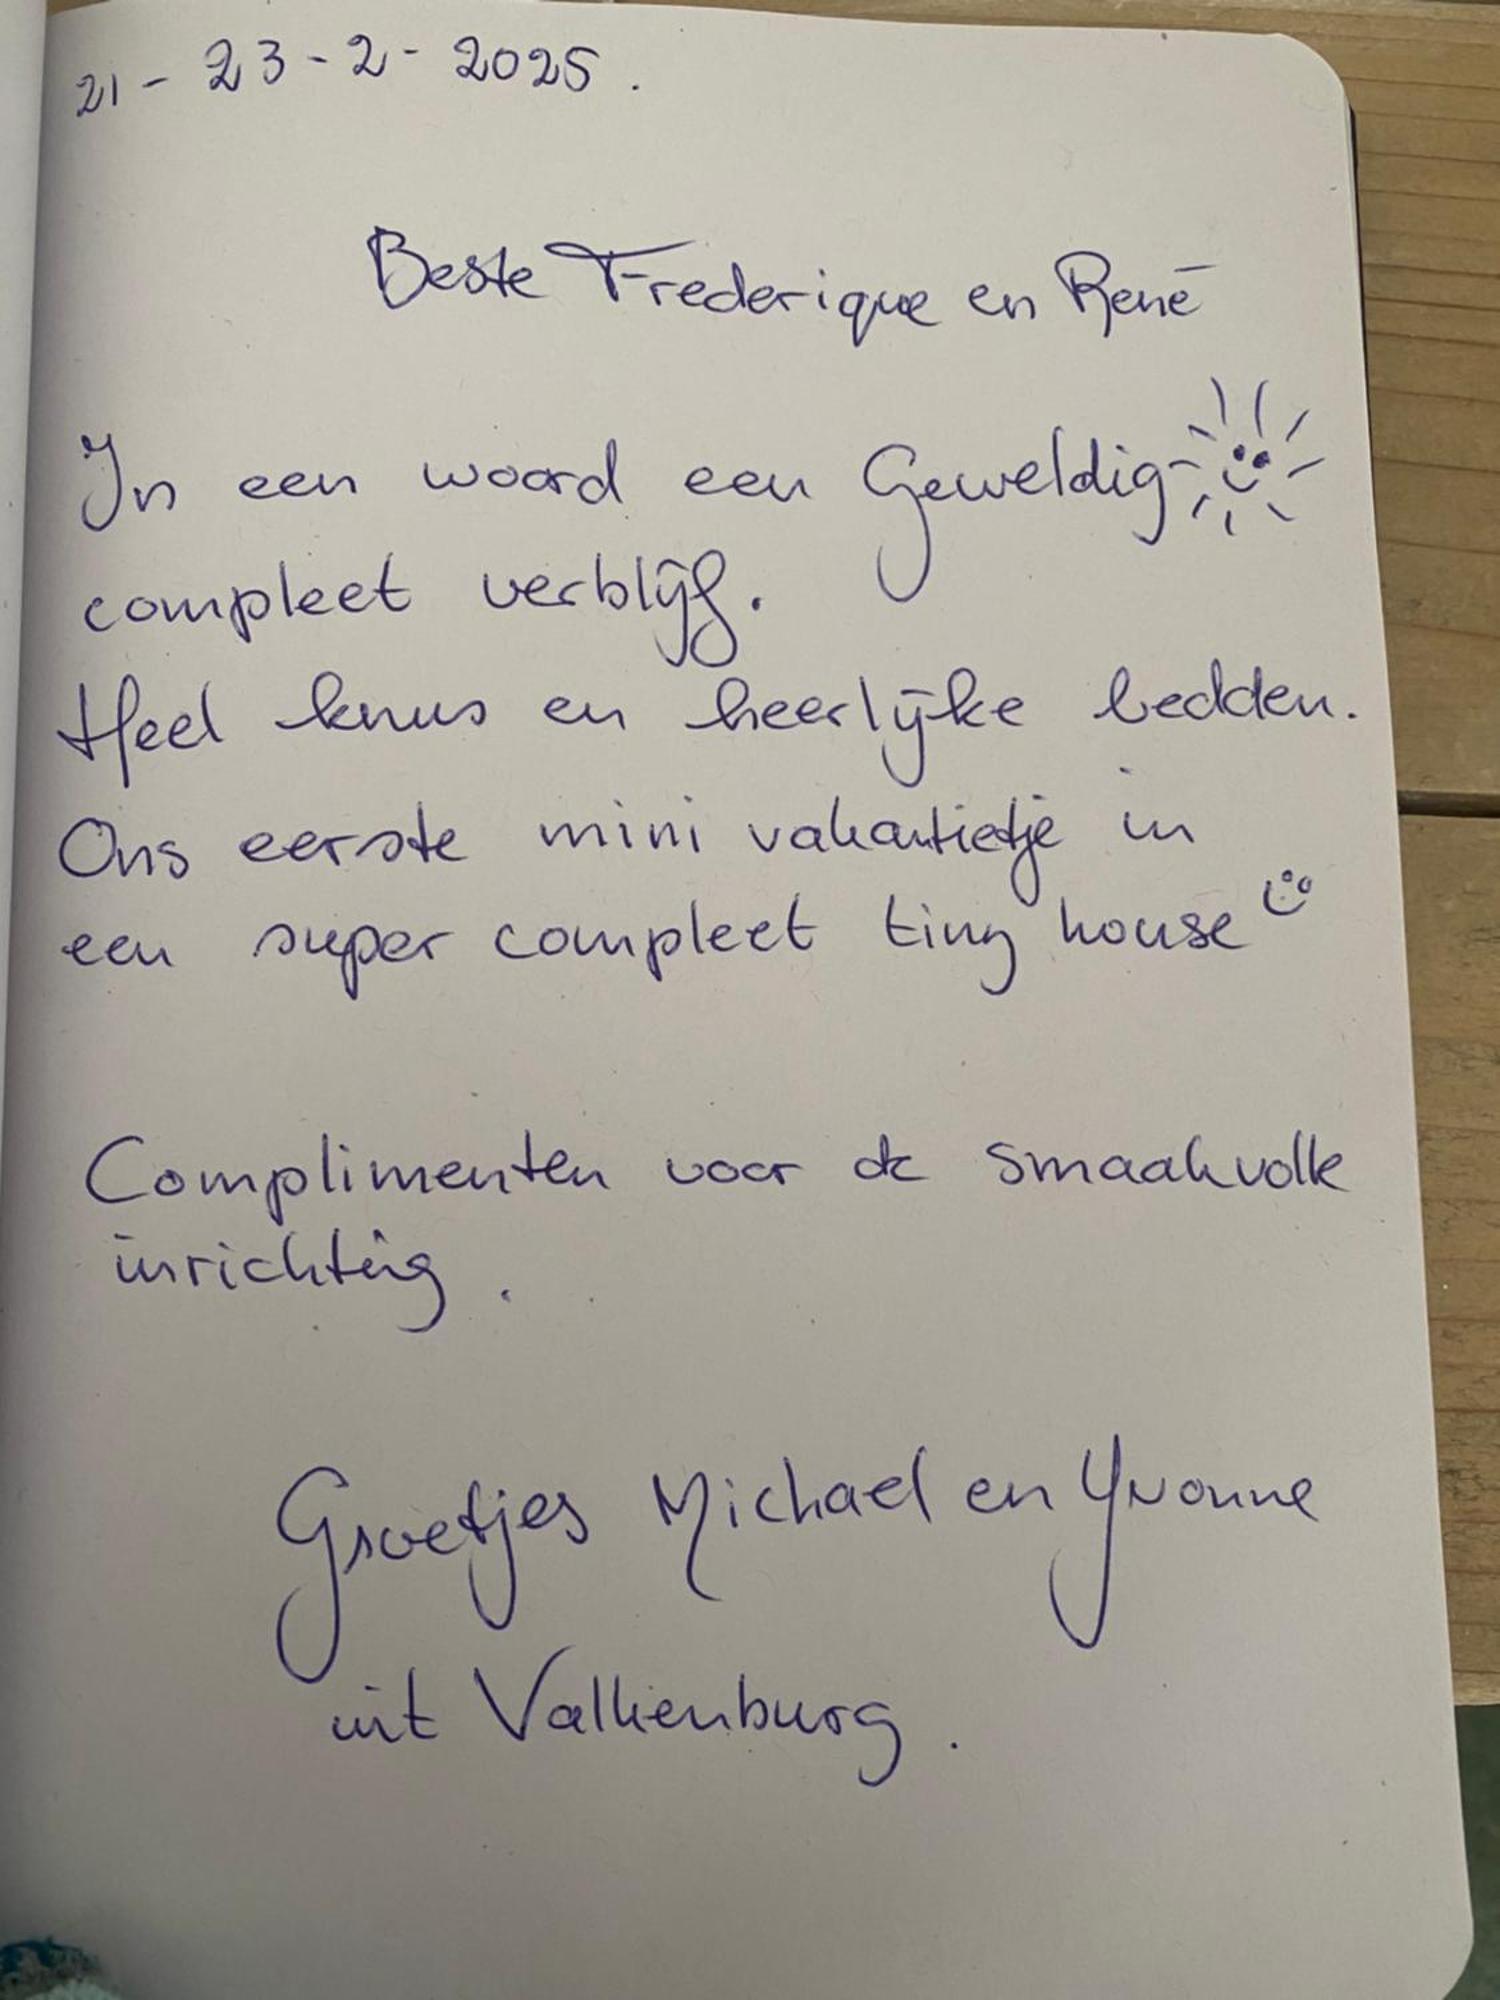 21 - 23 - 2 - 2025.
Beste Frederique en René
In een woord een Geweldig
compleet verblijf.
Heel knus en heerlijke bedden.
Ons eerste mini vakantietje in
een super compleet tiny house
Complimenten voor de smaakvolle
inrichting.
Groetjes Michael en Yvonne
uit Valkenburg.